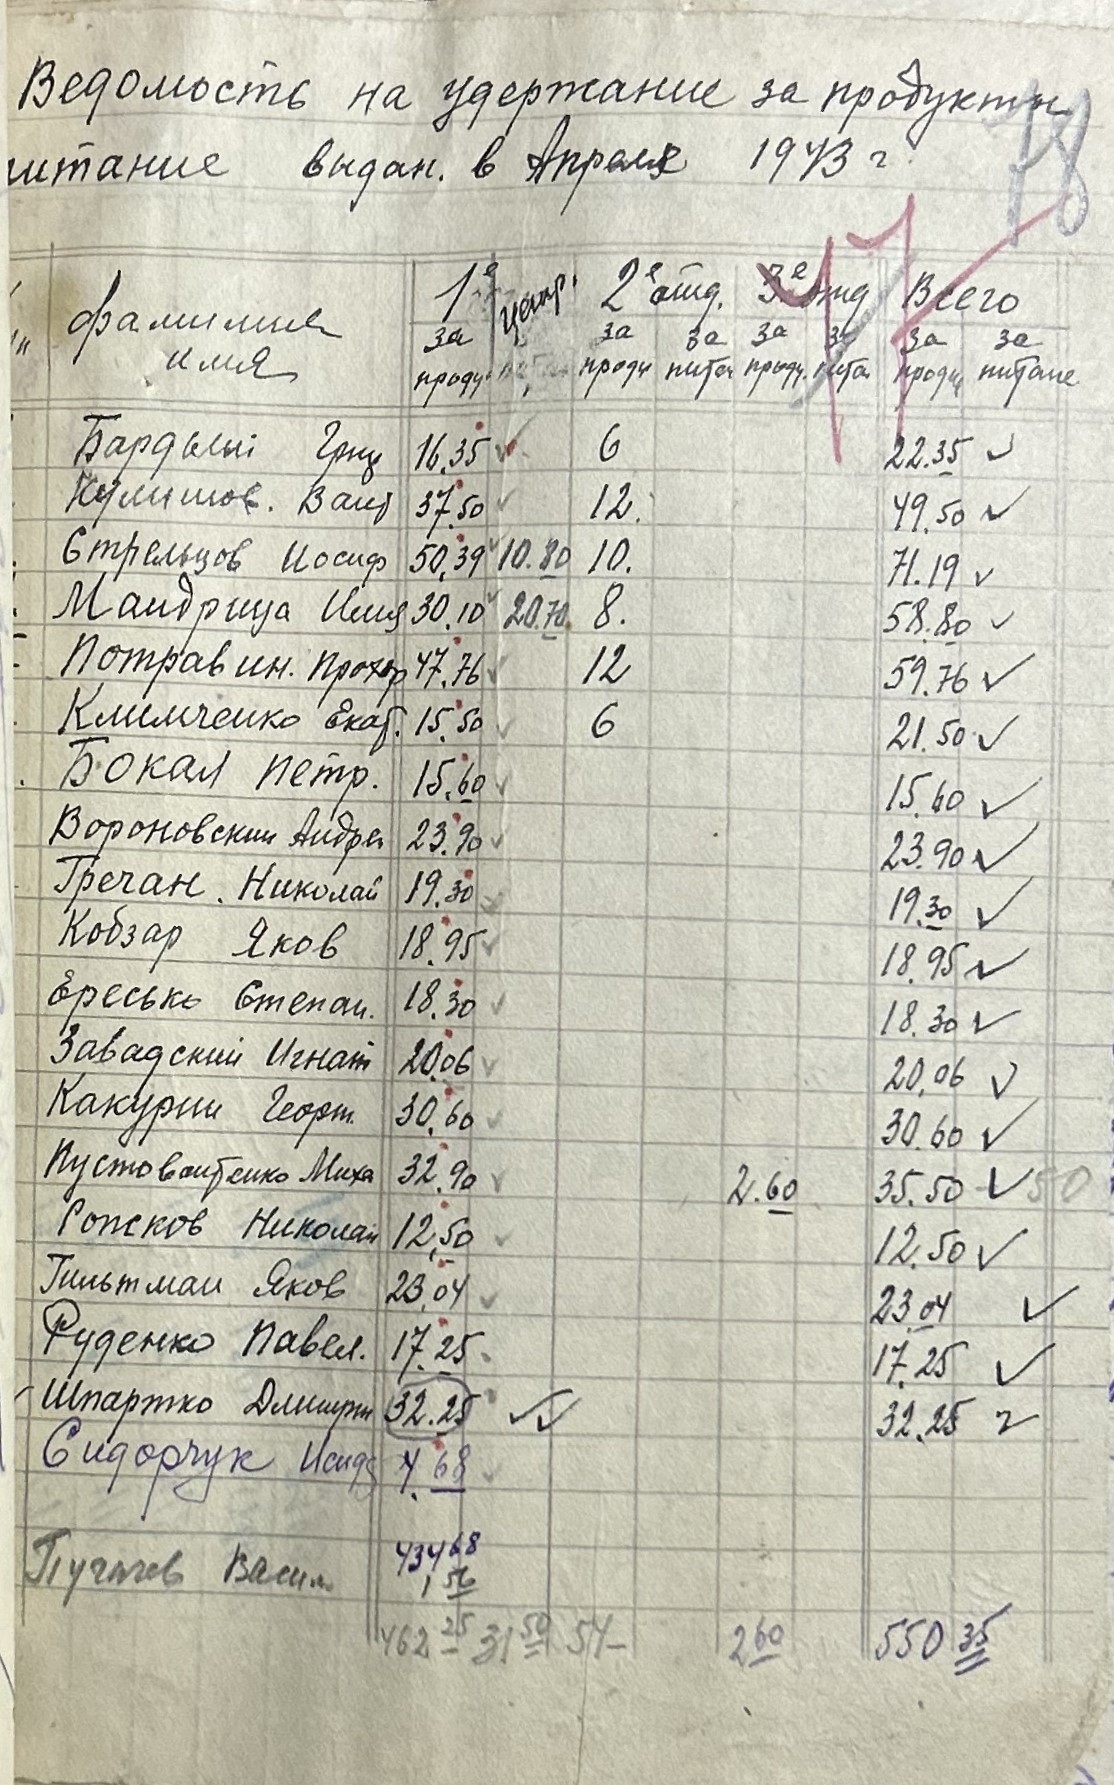 Ведомость на удержание за продукты и
питание выдан. в Апреле 1943 г
18
17
фамилия имя 1е центр. 2е отд. 3е отд Всего
за проду за проду за питан за проду. за питан за проду за питание
Бардылий Григ 16.35 6 22.35
Вант 37.50 12. 49.50
Стрельцов Иосиф 50,39 10.80 10. 71.19
Мандрица Илья 30.10 20.70. 8. 58.80
Потравин. Прохор 47.76 12 59.76
Климченко Екат. 15.50 6 21.50
Бокал Петр. 15.60 15.60
Вороновский Андрей 23.90 23.90
Гречан. Николай 19.30 19.30
Кобзар Яков 18.95 18.95
Ересько Степан. 18.30 18.30
Завадский Игнат 20.06 20.06
Какурин Георг. 30.60 30.60
Пустовойтенко Миха 32.90 2.60 35.50 50
Рожков Николай 12,50 12.50
Гильтман Яков 23.04 23.04
Руденко Павел. 17.25 17.25
Шпартко Дмитри 32.25 32.25
Сидорчук 4.68
434 68
Пугачев Васил 1 56
462 25 31 50 54- 2 60 550 35